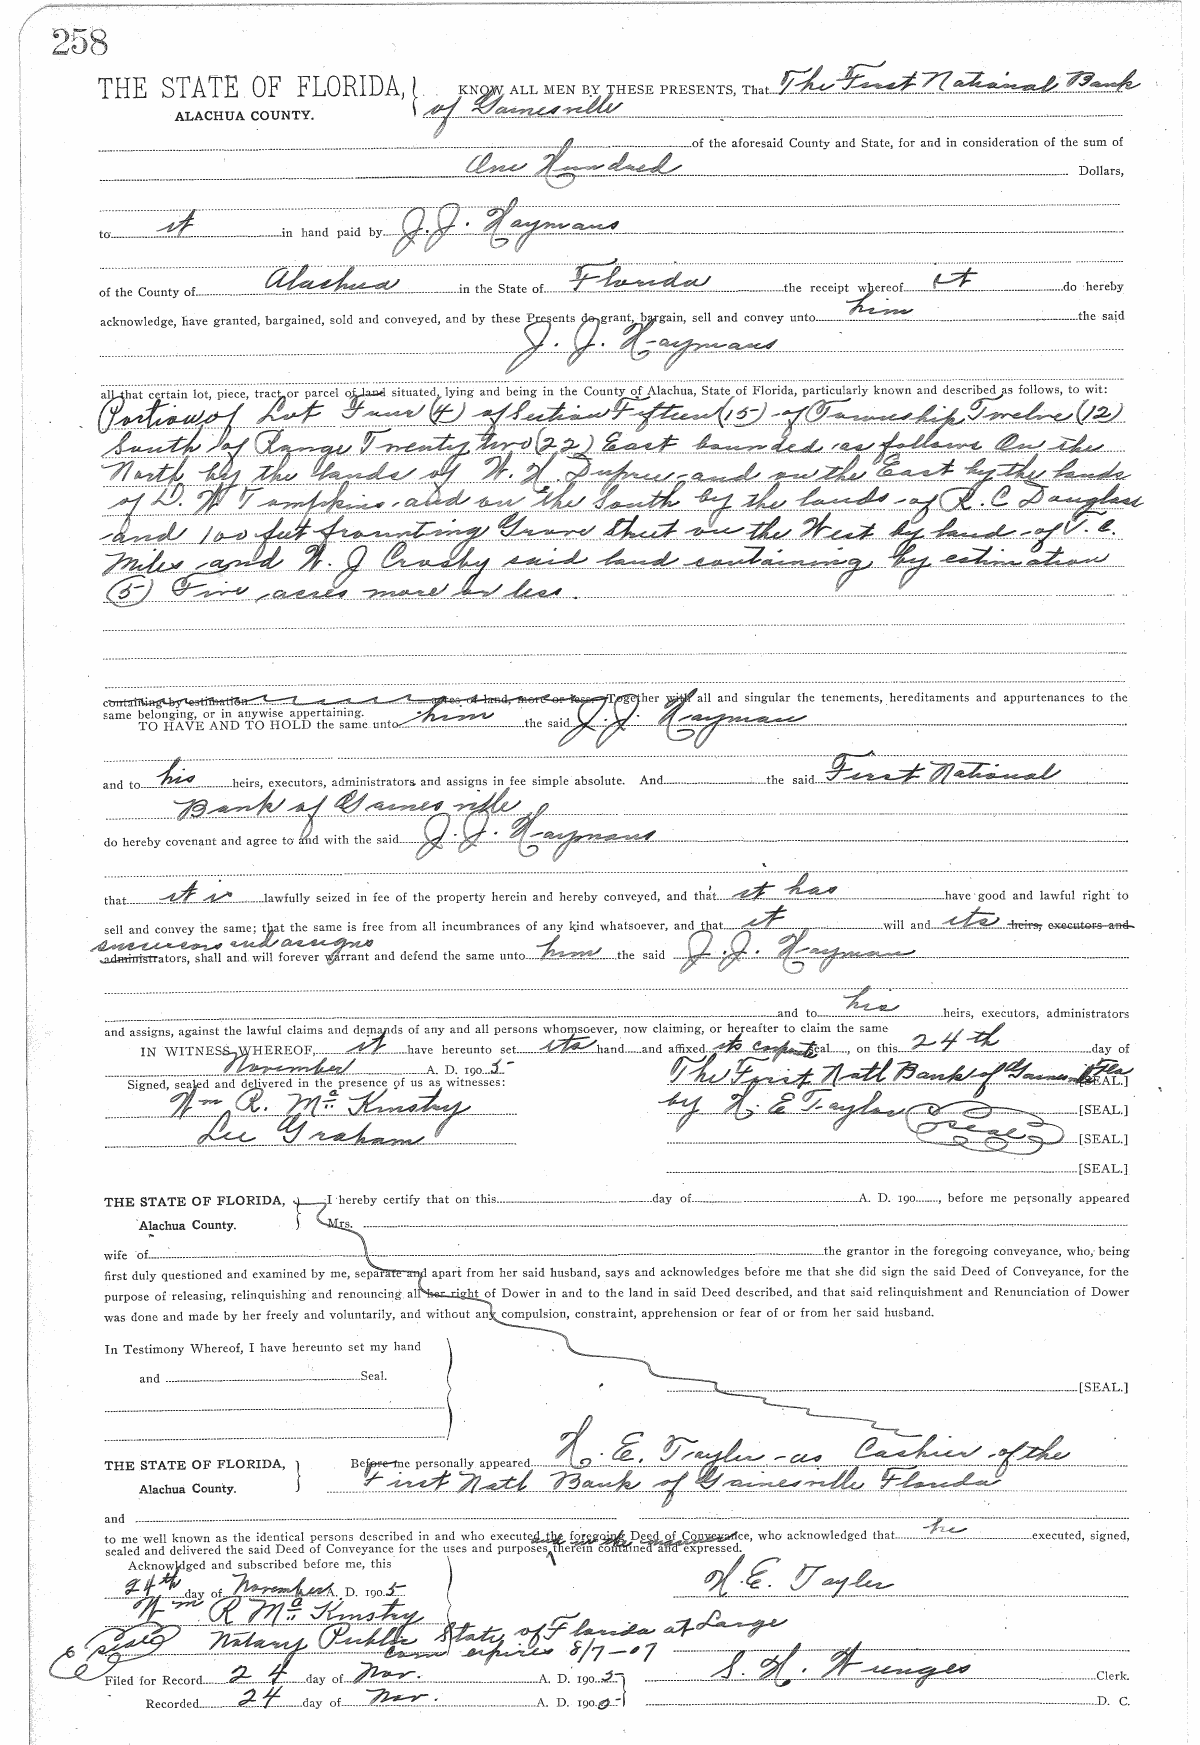 258
THE STATE OF FLORIDA, } KNOW ALL MEN BY THESE PRESENTS, That The First National Bank
ALACHUA COUNTY. of Gainesville
of the aforesaid County and State, for and in consideration of the sum of
One Hundred Dollars,
to it in hand paid by J. J. Haymans
of the County of Alachua in the State of Florida the receipt whereof it do hereby
acknowledge, have granted, bargained, sold and conveyed, and by these Presents do grant, bargain, sell and convey unto him the said
J. J. Haymans
all that certain lot, piece, tract or parcel of land situated, lying and being in the County of Alachua, State of Florida, particularly known and described as follows, to wit:
Portion of Lot Four (4) of Section Fifteen (15) of Township Twelve (12)
South of Range Twenty two (22) East bounded as follows On the
North by the lands of W. H. Dupree and on the East by the lands
of D. W Tompkins and on the South by the lands of R. C Douglass
and 100 feet fronting Grove Street on the West by land of T. C.
Miles and W. J Crosby said land containing by estimation
(5) Five acres more or less.
containing by estimation acres of land, more or less. Together with all and singular the tenements, hereditaments and appurtenances to the
same belonging, or in anywise appertaining.
TO HAVE AND TO HOLD the same unto him the said J. J. Hayman
and to his heirs, executors, administrators and assigns in fee simple absolute. And the said First National
Bank of Gainesville
do hereby covenant and agree to and with the said J. J. Haymans
that it is lawfully seized in fee of the property herein and hereby conveyed, and that it has have good and lawful right to
sell and convey the same; that the same is free from all incumbrances of any kind whatsoever, and that it will and its heirs, executors and
successors and assigns
administrators, shall and will forever warrant and defend the same unto him the said J. J. Hayman
and to his heirs, executors, administrators
and assigns, against the lawful claims and demands of any and all persons whomsoever, now claiming, or hereafter to claim the same
IN WITNESS WHEREOF, it have hereunto set its hand and affixed its corporate seal, on this 24th day of
November A. D. 1905
Signed, sealed and delivered in the presence of us as witnesses: The First Natl Bank of Gainesville Fla [SEAL.]
Wm R. McKinstry by H. E Tayler [SEAL.]
Lee Graham Seal [SEAL.]
[SEAL.]
THE STATE OF FLORIDA, } I hereby certify that on this day of A. D. 190, before me personally appeared
Alachua County. Mrs.
wife of the grantor in the foregoing conveyance, who, being
first duly questioned and examined by me, separate and apart from her said husband, says and acknowledges before me that she did sign the said Deed of Conveyance, for the
purpose of releasing, relinquishing and renouncing all her right of Dower in and to the land in said Deed described, and that said relinquishment and Renunciation of Dower
was done and made by her freely and voluntarily, and without any compulsion, constraint, apprehension or fear of or from her said husband.
In Testimony Whereof, I have hereunto set my hand
and Seal.
[SEAL.]
THE STATE OF FLORIDA, } Before me personally appeared H. E. Tayler as Cashier of the
Alachua County. First Natl Bank of Gainesville Florida
and
to me well known as the identical persons described in and who executed the foregoing Deed of Conveyance, who acknowledged that he executed, signed,
sealed and delivered the said Deed of Conveyance for the uses and purposes therein contained and expressed.
Acknowldged and subscribed before me, this
24th day of November A. D. 1905 H. E. Tayler
Wm R McKinstry
Seal Notary Public State of Florida at Large
Com expires 8/7-07
Filed for Record 24 day of Nov. A. D. 1905 S. H. Wienges Clerk.
Recorded 24 day of Nov. A. D. 1905 D. C.